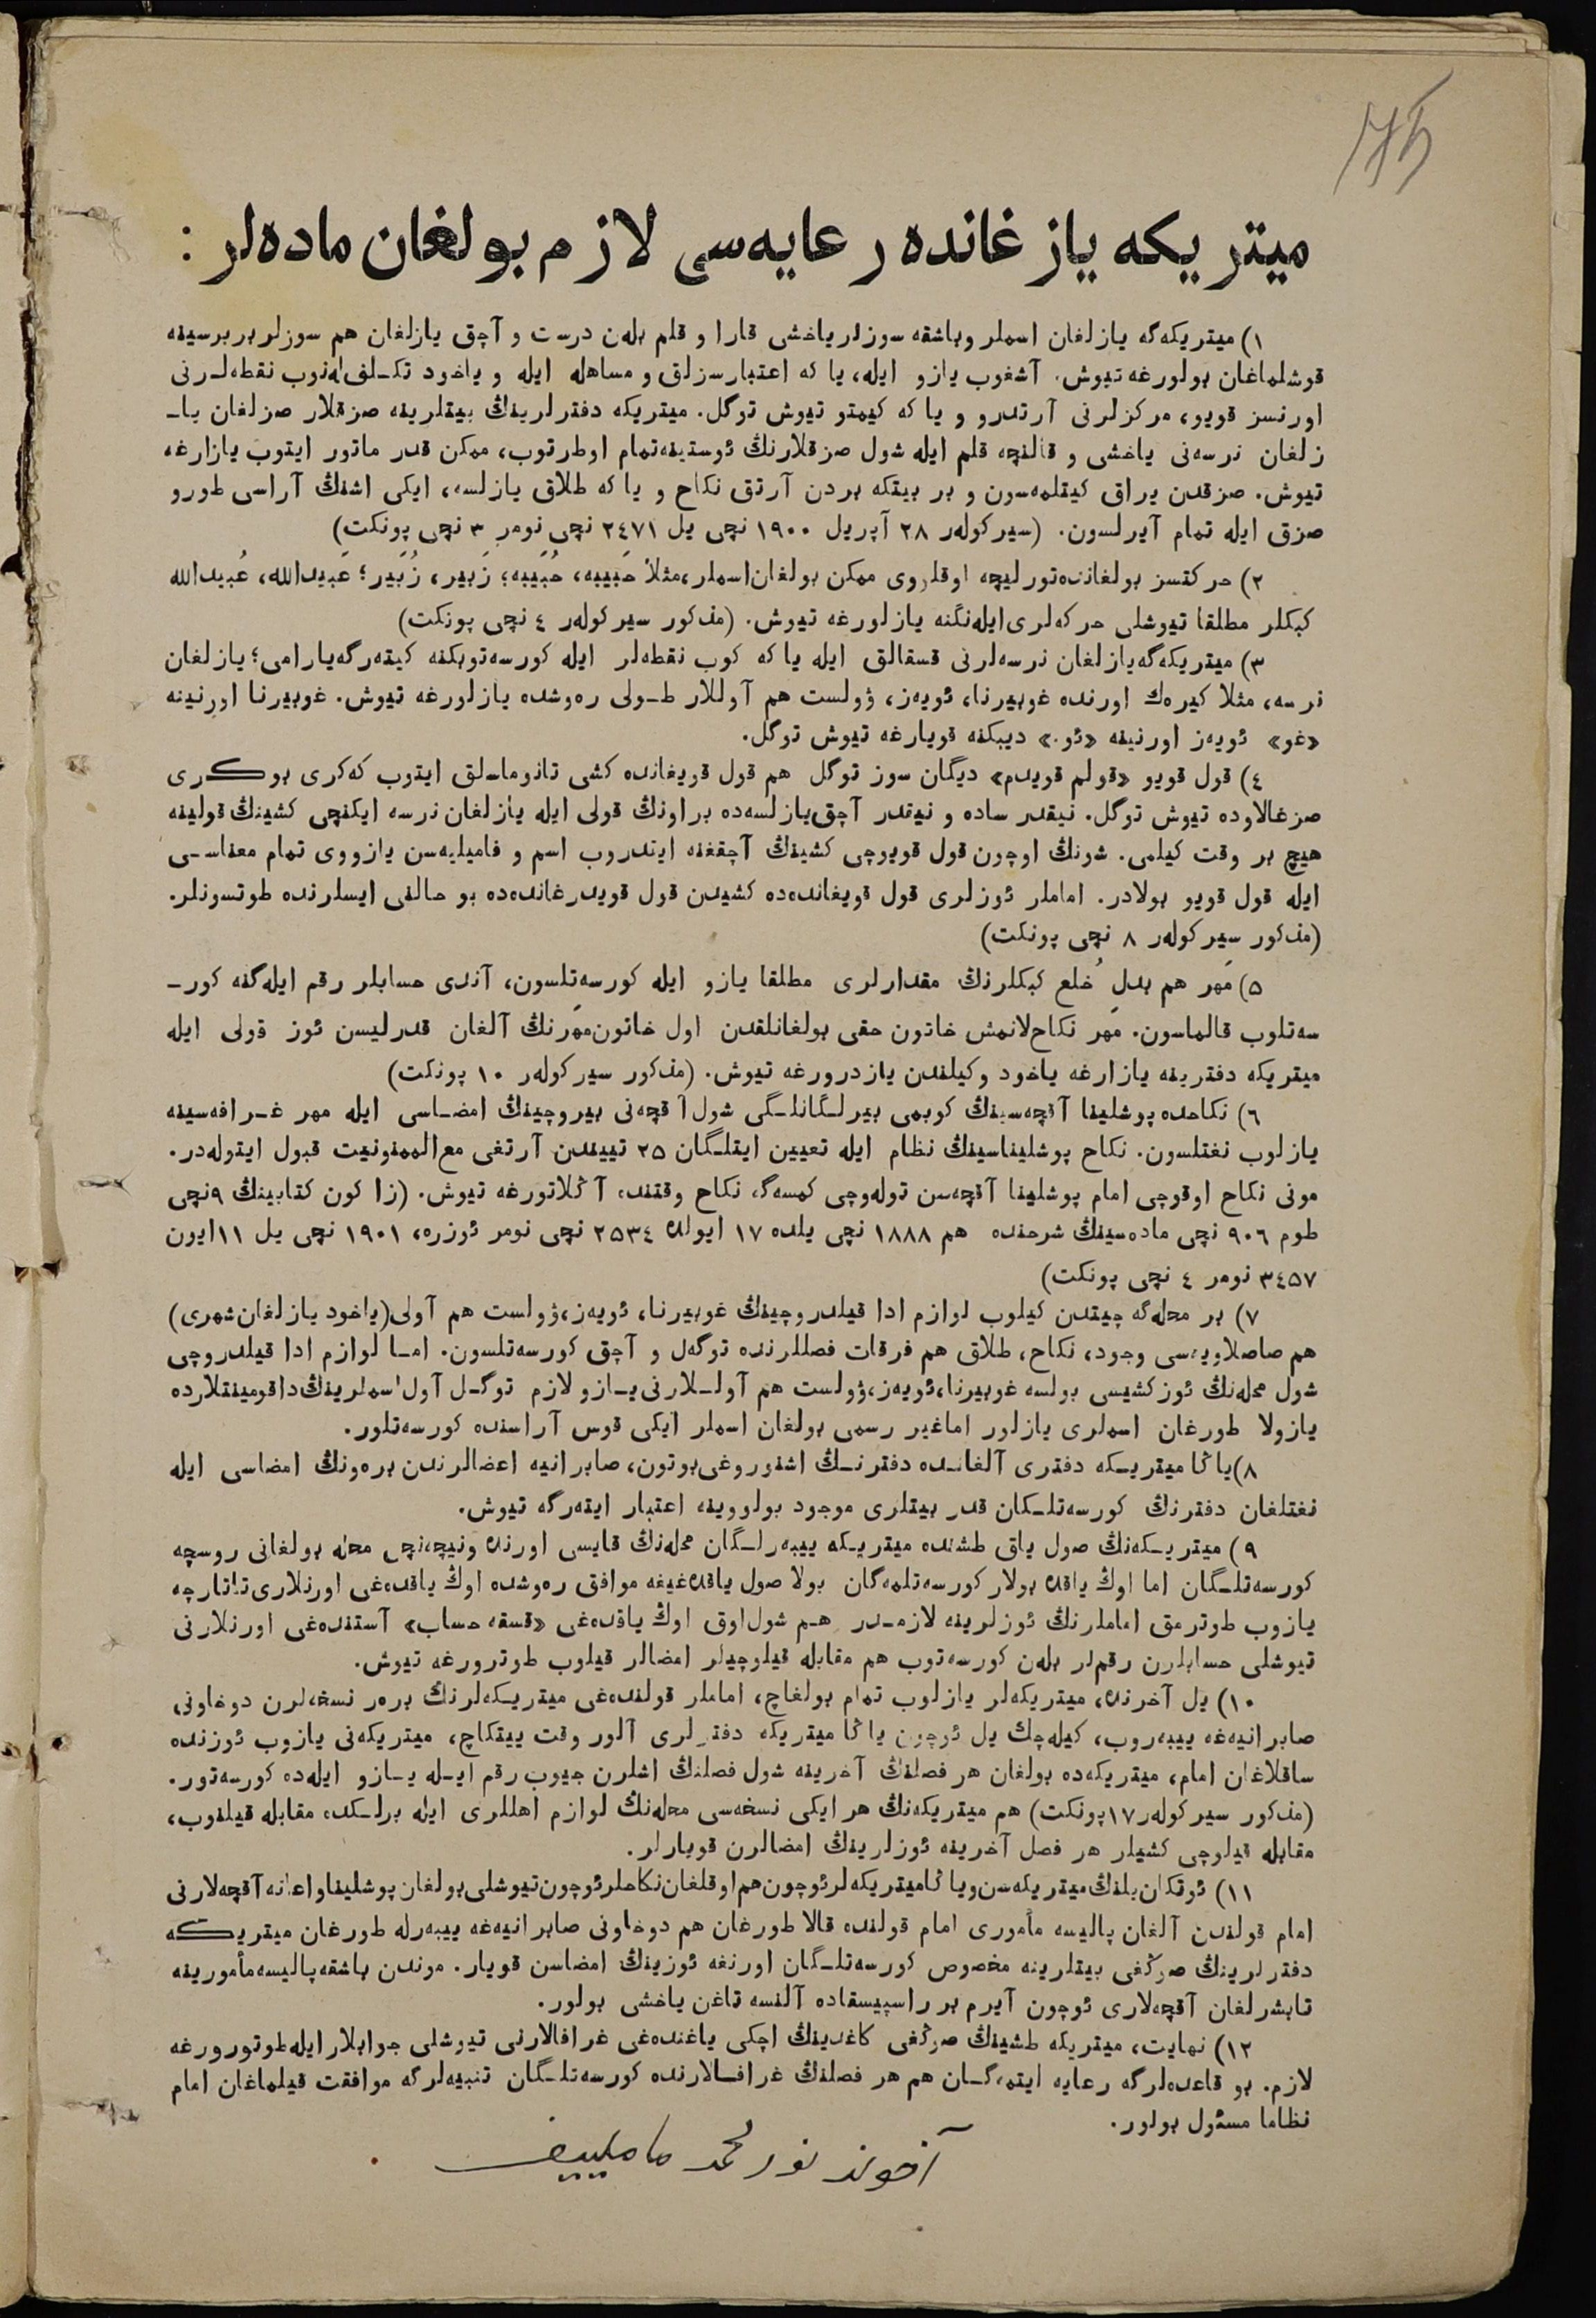 میتریكه یازغانده رعایه‌سی لازم بولغان ماده‌لر :
۱) میتریكه‌گه یازلغان اسملر وباشقه سوزلر یاخشی قارا و قلم بله‌ن درست و آچق یازلغان هم سوزلر بربرسینه
قوشلماغان بولورغه تیوش. آشغوب یازو ایله، یا كه اعتبارسزلق و مساهله ایله و یاخود تكـلف له‌نوب نقطه‌لـرنی
اورنسز قویو، مركزلرنی آرتدرو و یا كه كیمتو تیوش توگل. میتریكه دفترلرینڭ بیتلرینه صزقلار صزلغان یا ـ
زلغان نرسه‌نی یاخشی و قالنچه قلم ایله شول صزقلارنڭ ئوستینه تمام اوطرتوب، ممكن قدر ماتور ایتوب یازارغه
تیوش. صزقدن یراق كیتلمه‌سون و بر بیتكه بردن آرتق نكاح و یا كه طلاق یازلسه، ایكی اشنڭ آراسی طورو
صزق ایله تمام آیرلسون. (سیركوله‌ر ۲۸ آپریل ۱۹۰۰ نچی یل ۲٤۷۱ نچی نومر ۳ نچی پونكت)
۲) حركتسز بولغانده تورلیچه اوقلروی ممكن بولغان اسملر، مثلا حَبیبه، حُبیبه؛ زَبیر، زُبیر؛ عَبیدالله، عُبیدالله
كبكلر مطلقا تیوشلی حركه‌لری ایله‌نگنه یازلورغه تیوش. (مذكور سیركوله‌ر ٤ نچی پونكت)
۳) میتریكه‌گه یازلغان نرسه‌لرنی قسقالق ایله یا كه كوب نقطه‌لر ایله كورسه‌توبكنه كیته‌رگه یارامی؛ یازلغان
نرسه، مثلا كیره‌ك اورنده غوبیرنا، ئویه‌ز، ؤولست هم آوللار طـولی ره‌وشده یازلورغه تیوش. غوبیرنا اورنینه
«غو» ئویه‌ز اورنینه «ئو.» دیبكنه قویارغه تیوش توگل.
٤) قول قویو «قولم قویدم» دیگان سوز توگل هم قول قویغانده كشی تانوماسلق ایتوب كه‌كری بوكـری
صزغالاوده تیوش توگل. نیقدر ساده و نیتدر آچق یازلسه‌ده براونڭ قولی ایله یازلغان نرسه ایكنچی كشینڭ قولینه
هیچ بر وقت كیلمی. شونڭ اوچون قول قویوچی كشینڭ آچقغنه ایتدروب اسم و فامیلیه‌سن یازووی تمام معناسـی
ایله قول قویو بولادر. اماملر ئوزلری قول قویغانده‌ده كشیدن قول قویدرغانده‌ده بو حالنی ایسلرنده طوتسونلر.
(مذكور سیركوله‌ر ۸ نچی پونكت)
۵) مَهر هم بدل خُلع كبكلرنڭ مقدارلری مطلقا یازو ایله كورسه‌تلسون، آندی حسابلر رقم ایله‌گنه كورـ
سه‌تلوب قالماسون. مَهر نكاح‌لانمش خاتون حقی بولغانلقدن اول خاتون مَهرنڭ آلغان قدرلیسن ئوز قولی ایله
میتریكه دفترینه یازارغه یاخود وكیلندن یازدرورغه تیوش. (مذكور سیركوله‌ر ۱۰ پونكت)
٦) نكاحده پوشلینا آقچه‌سینڭ كوبمی بیرلـگانلـگی شول آقچه‌نی بیروچینڭ امضـاسی ایله مهر غـرافه‌سینه
یازلوب نغتلسون. نكاح پوشلیناسینڭ نظام ایله تعیین ایتلـگان ۲۵ تییندن آرتغی مع‌الممنونیت قبول ایتوله‌در.
مونی نكاح اوقوچی امام پوشلینا آقچه‌سن توله‌وچی كمسه‌گه نكاح وقتنده آڭلاتورغه تیوش. (زاكون كتابینڭ ۹نچی
طوم ۹۰٦ نچی ماده‌سینڭ شرحنده هم ۱۸۸۸ نچی یلده ۱۷ ایولده ۲۵۳٤ نچی نومر ئوزره، ۱۹۰۱ نچی یل ۱۱ ایون
۳٤۵۷ نومر ٤ نچی پونكت)
۷) بر محله‌گه چیتدن كیلوب لوازم ادا قیلدروچینڭ غوبیرنا، ئویه‌ز، ؤولست هم آولی (یاخود یازلغان شهری)
هم صاصلاویه‌سی وجود، نكاح، طلاق هم فرقات فصللرنده توگه‌ل و آچق كورسه‌تلسون. امـا لوازم ادا قیلدروچی
شول محله‌نڭ ئوز كشیسی بولسه غوبیرنا، ئویه‌ز، ؤولست هم آولـلارنی یـازو لازم توگـل آول اسملرینڭ داقومینتلارده
یازولا طورغان اسملری یازلور اما غیر رسمی بولغان اسملر ایكی قوس آراسنده كورسه‌تلور.
۸) یاڭا میتریـكه دفتری آلغانـده دفترنـڭ اشنوروغی بوتون، صابرانیه اعضالرندن بره‌ونڭ امضاسی ایله
نغتلغان دفترنڭ كورسه‌تلـكان قدر بیتلری موجود بولووینه اعتبار ایته‌رگه تیوش.
۹) میتریـكه‌نڭ صول یاق طشنده میتریـكه ییبه‌رلـگان محله‌نڭ قایسی اورنده ونیچه‌نچی محله بولغانی روسچه
كورسه‌تلـگان اما اوڭ یاقده بولار كورسه‌تلمه‌گان بولا صول یاقده‌غیغه موافق ره‌وشده اوڭ یاقده‌غی اورنلاری تاتارچه
یازوب طوترمق اماملرنڭ ئوزلرینه لازمـدر هـم شول اوق اوڭ یاقده‌غی «قسقه حساب» آستنده‌غی اورنلارنی
تیوشلی حسابلرن رقملر بله‌ن كورسه‌توب هم مقابله قیلوچیلر امضالر قیلوب طوترورغه تیوش.
۱۰) یل آخرنده، میتریكه‌لر یازلوب تمام بولغاچ، اماملر قولنده‌غی میتریـكه‌لرنڭ بره‌ر نسخه‌لرن دوخاونی
صابرانیه‌غه ییبه‌روب، كیله‌چك یل ئوچون یاڭا میتریكه دفترلری آلور وقت ییتكاچ، میتریكه‌نی یازوب ئوزنده
ساقلاغان امام، میتریكه‌ده بولغان هر فصلنڭ آخرینه شول فصلنڭ اشلرن جیوب رقم ایـله یـازو ایله‌ده كورسه‌تور.
(مذكور سیركوله‌ر ۱۷پونكت) هم میتریكه‌نڭ هر ایكی نسخه‌سی محله‌نڭ لوازم اهللری ایله برلـكده مقابله قیلنوب،
مقابله قیلوچی كشیلر هر فصل آخرینه ئوزلرینڭ امضالرن قویارلر.
۱۱) ئوتكان یلنڭ میتریكه‌سن ویاڭا میتریكه‌لر ئوچون هم اوقلغان نكاحلر ئوچون تیوشلی بولغان پوشلینا و اعانه آقچه‌لارنی
امام قولندن آلغان پالیسه مأموری امام قولنده قالا طورغان هم دوخاونی صابرانیه‌غه ییبه‌رله طورغان میتریـكه
دفترلرینڭ صوڭغی بیتلرینه مخصوص كورسه‌تلـگان اورنغه ئوزینڭ امضاسن قویار. موندن باشقه پالیسه مأمورینه
تابشرلغان آقچه‌لاری ئوچون آیرم بر راسپیسقاده آلنسه تاغن یاخشی بولور.
۱۲) نهایت، میتریكه طشینڭ صوڭغی كاغدینڭ اچكی یاغنده‌غی غرافالارنی تیوشلی جوابلار ایله طوتورورغه
لازم. بو قاعده‌لرگه رعایه ایتمه‌گـان هم هر فصلنڭ غرافـالارنده كورسه‌تلـگان تنبیه‌لرگه موافقت قیلماغان امام
نظاما مسئول بولور.
آخوند نور محمد مامليیف